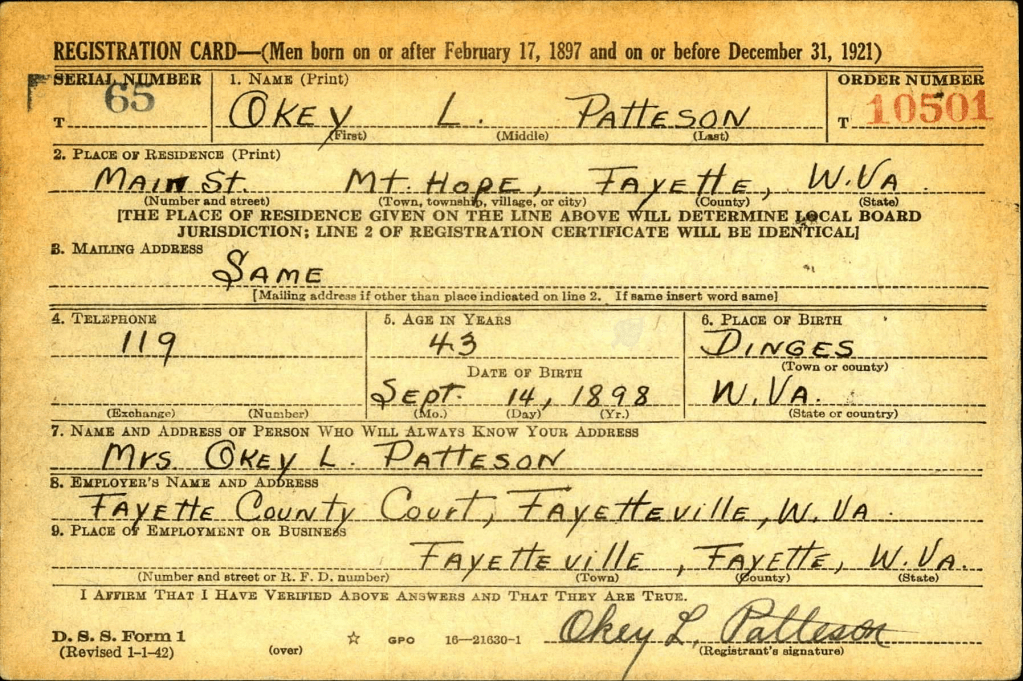 REGISTRATION CARD—(Men born on or after February 17, 1897 and on or before December 31, 1921)
SERIAL NUMBER 1. NAME (Print) ORDER NUMBER
T 65 OKEY L. PATTESON T 10501
(First) (Middle) (Last)
2. PLACE OF RESIDENCE (Print)
MAIN ST. MT. HOPE, FAYETTE, W.VA.
(Number and street) (Town, township, village, or city) (County) (State)
[THE PLACE OF RESIDENCE GIVEN ON THE LINE ABOVE WILL DETERMINE LOCAL BOARD
JURISDICTION; LINE 2 OF REGISTRATION CERTIFICATE WILL BE IDENTICAL]
3. MAILING ADDRESS
SAME
[Mailing address if other than place indicated on line 2. If same insert word same]
4. TELEPHONE 5. AGE IN YEARS 6. PLACE OF BIRTH
119 43 DINGES
DATE OF BIRTH (Town or county)
SEPT. 14, 1898 W.VA.
(Exchange) (Number) (Mo.) (Day) (Yr.) (State or country)
7. NAME AND ADDRESS OF PERSON WHO WILL ALWAYS KNOW YOUR ADDRESS
MRS OKEY L. PATTESON
8. EMPLOYER'S NAME AND ADDRESS
FAYETTE COUNTY COURT, FAYETTEVILLE, W.VA.
9. PLACE OF EMPLOYMENT OR BUSINESS
FAYETTEVILLE, FAYETTE, W.VA.
(Number and street or R. F. D. number) (Town) (County) (State)
I AFFIRM THAT I HAVE VERIFIED ABOVE ANSWERS AND THAT THEY ARE TRUE.
D. S. S. Form 1 ☆ GPO 16—21630-1 Okey L. Patteson
(Revised 1-1-42) (over) (Registrant's signature)